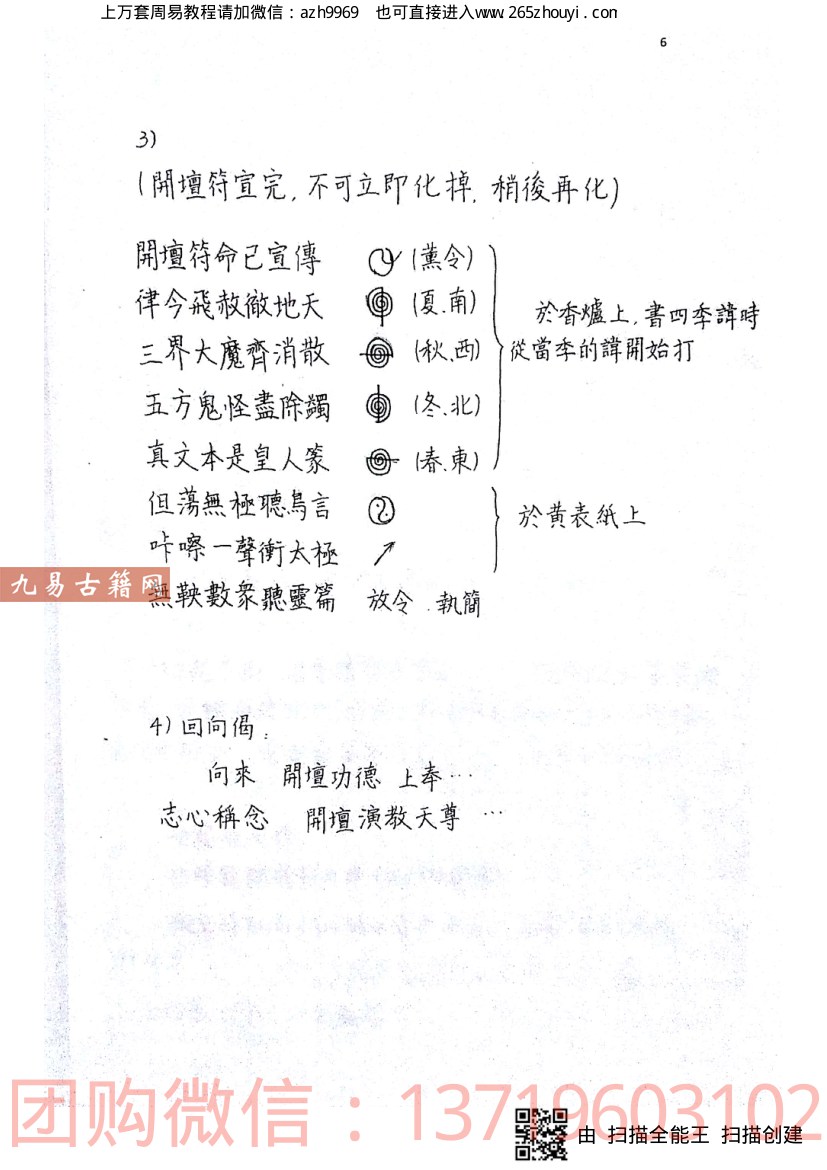 上万套周易教程请加微信：azh9969 也可直接进入www.265zhouyi.com
6
3)
(開壇符宣完, 不可立即化掉, 稍後再化)
開壇符命已宣傳 (薰令)
律令飛赦徹地天 (夏.南)
三界大魔齊消散 (秋.西)
五方鬼怪盡除蠲 (冬.北)
真文本是皇人篆 (春.東)
於香爐上, 書四季諱時
從當季的諱開始打
但蕩無極聽烏言
咔嚓一聲衝太極
於黄表紙上
無鞅數衆聽靈篇 放令.執簡
九易古籍网
4) 回向偈:
向來 開壇功德 上奉…
志心稱念 開壇演教天尊 …
团购微信：13719603102
由 扫描全能王 扫描创建